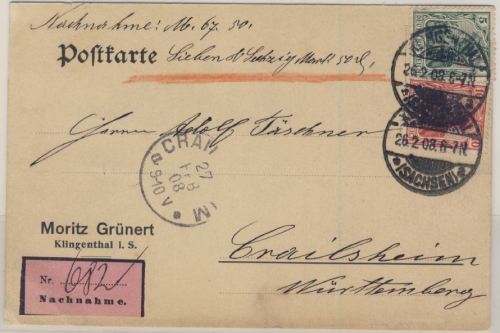 Nachnahme! M. 67. 50.
Postkarte
Sieben & Sechzig Mark 50 ₰
5
KLINGENTHAL
26.2.08. 6-7N.
*(SACHSEN)*
10
26.2.08. 6-7N.
*(SACHSEN)*
Herrn Adolf Fäschner
27
08
Moritz Grünert
Klingenthal i. S.
Crailsheim
Württemberg
Nr. 682
Nachnahme.